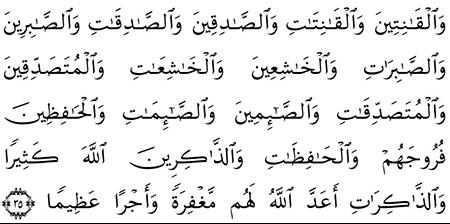 وَٱلْقَٰنِتِينَ وَٱلْقَٰنِتَٰتِ وَٱلصَّٰدِقِينَ وَٱلصَّٰدِقَٰتِ وَٱلصَّٰبِرِينَ
وَٱلصَّٰبِرَٰتِ وَٱلْخَٰشِعِينَ وَٱلْخَٰشِعَٰتِ وَٱلْمُتَصَدِّقِينَ
وَٱلْمُتَصَدِّقَٰتِ وَٱلصَّٰٓئِمِينَ وَٱلصَّٰٓئِمَٰتِ وَٱلْحَٰفِظِينَ
فُرُوجَهُمْ وَٱلْحَٰفِظَٰتِ وَٱلذَّٰكِرِينَ ٱللَّهَ كَثِيرًا
وَٱلذَّٰكِرَٰتِ أَعَدَّ ٱللَّهُ لَهُم مَّغْفِرَةً وَأَجْرًا عَظِيمًا ٣٥